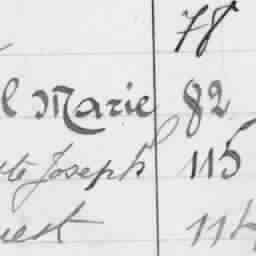 78
l Marie 82
te Joseph 115
uest 114